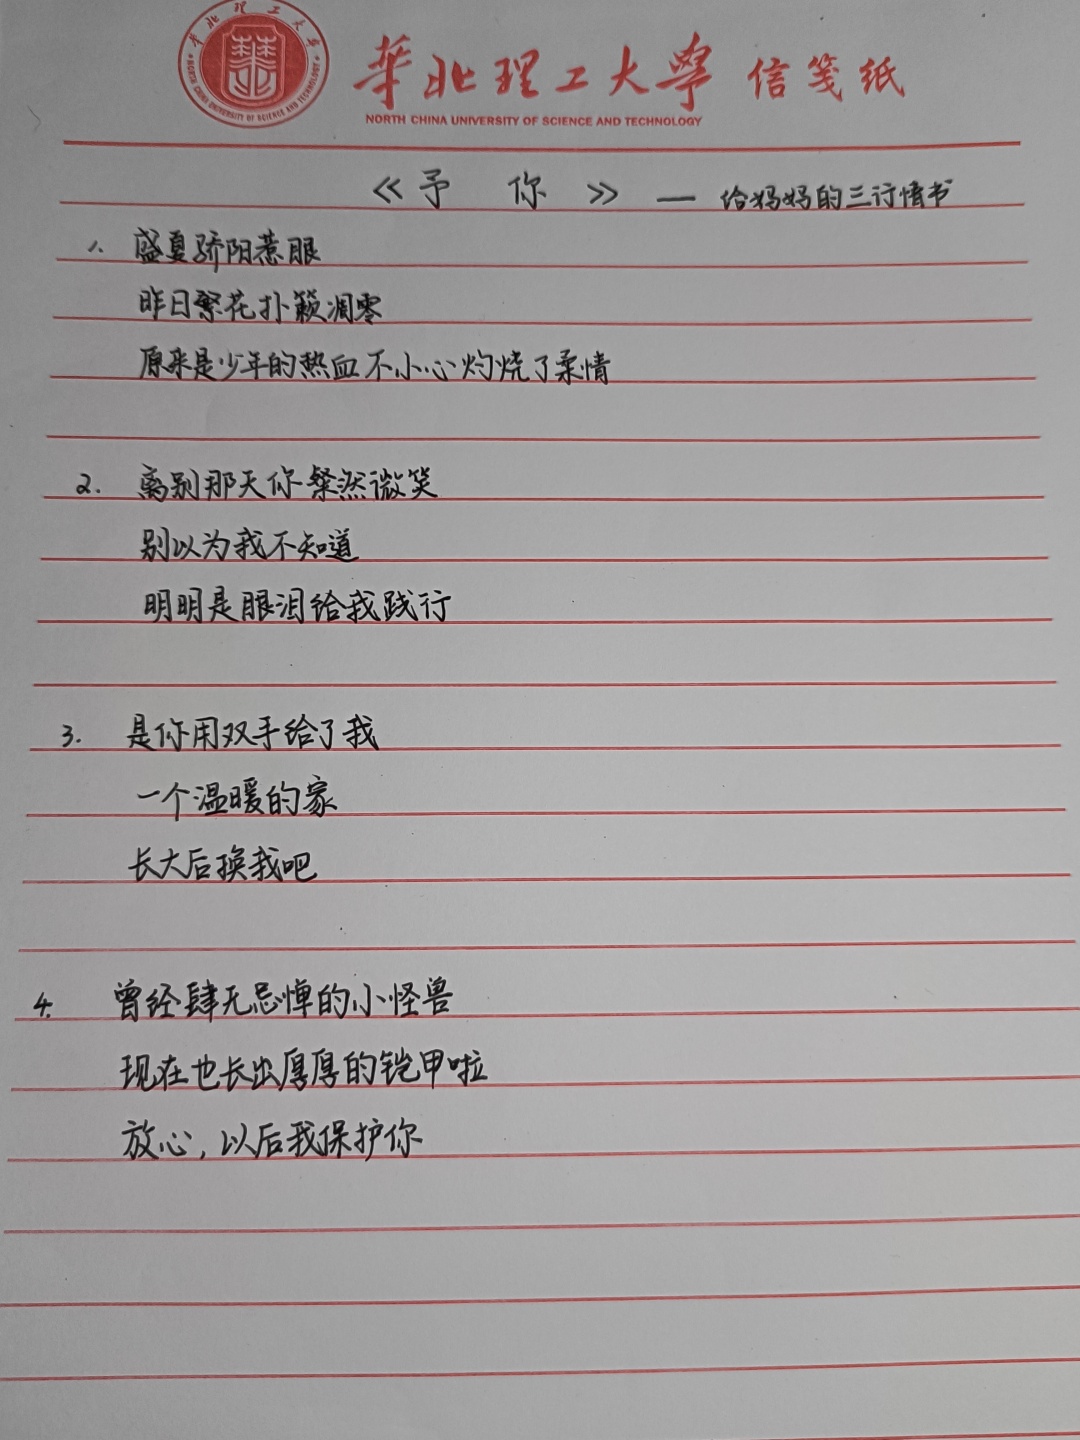 華北理工大學 信笺纸
NORTH CHINA UNIVERSITY OF SCIENCE AND TECHNOLOGY
《予 你》— 给妈妈的三行情书
1. 盛夏骄阳惹眼
昨日繁花扑簌凋零
原来是少年的热血不小心灼烧了柔情
2. 离别那天你粲然微笑
别以为我不知道
明明是眼泪给我践行
3. 是你用双手给了我
一个温暖的家
长大后换我吧
4. 曾经肆无忌惮的小怪兽
现在也长出厚厚的铠甲啦
放心,以后我保护你